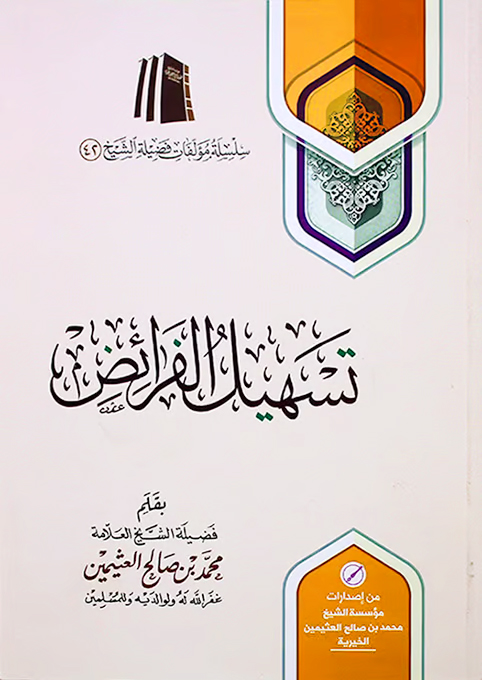 سلسلة مؤلفات فضيلة الشيخ (٤٢)
تسهيل الفرائض
بقلم
فضيلة الشيخ العلامة
محمد بن صالح العثيمين
غفر الله له ولوالديه وللمسلمين
من إصدارات
مؤسسة الشيخ
محمد بن صالح العثيمين
الخيرية